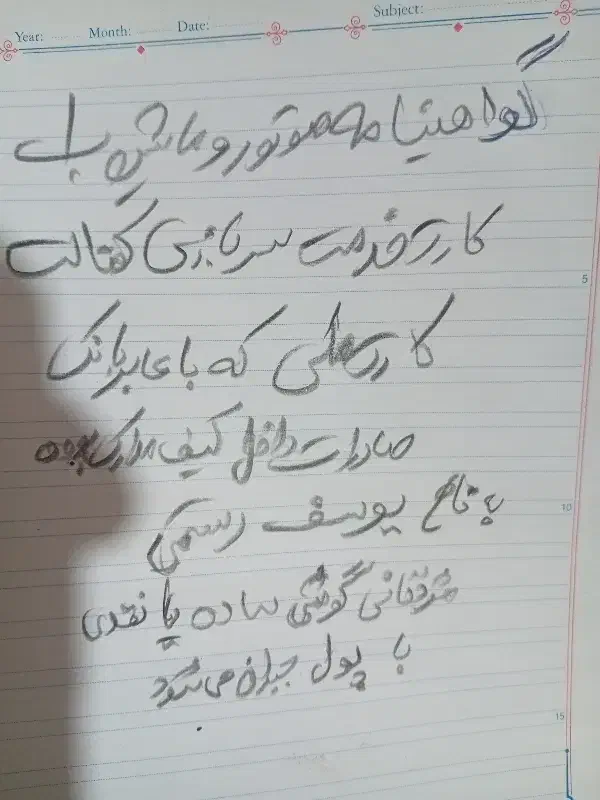 Year: Month: Date: Subject:
گواهینامه موتور و ماشین با
کارت خدمت سربازی کفالت
کارت ملی که با عابر بانک
صادرات داخل کیف مدارک بوده
به نام یوسف رستمی
مژدگانی گوشی ساده یا نقدی
با پول جبران می شود
5
10
15